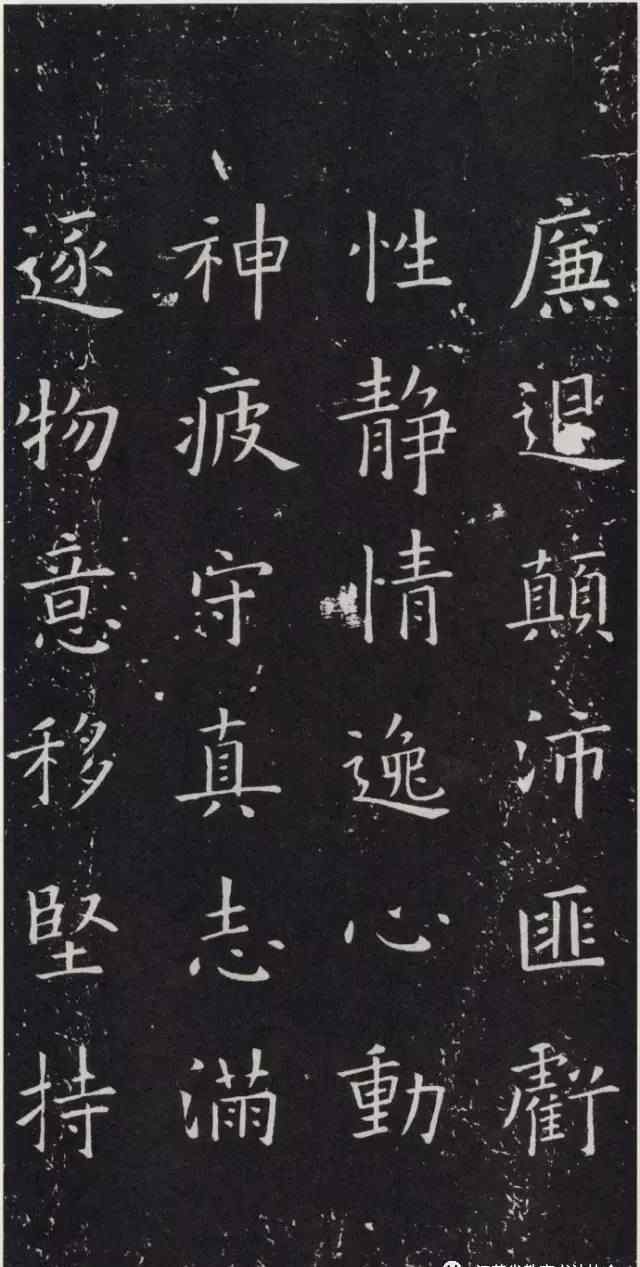 廉退顛沛匪虧
性靜情逸心動
神疲守真志滿
逐物意移堅持